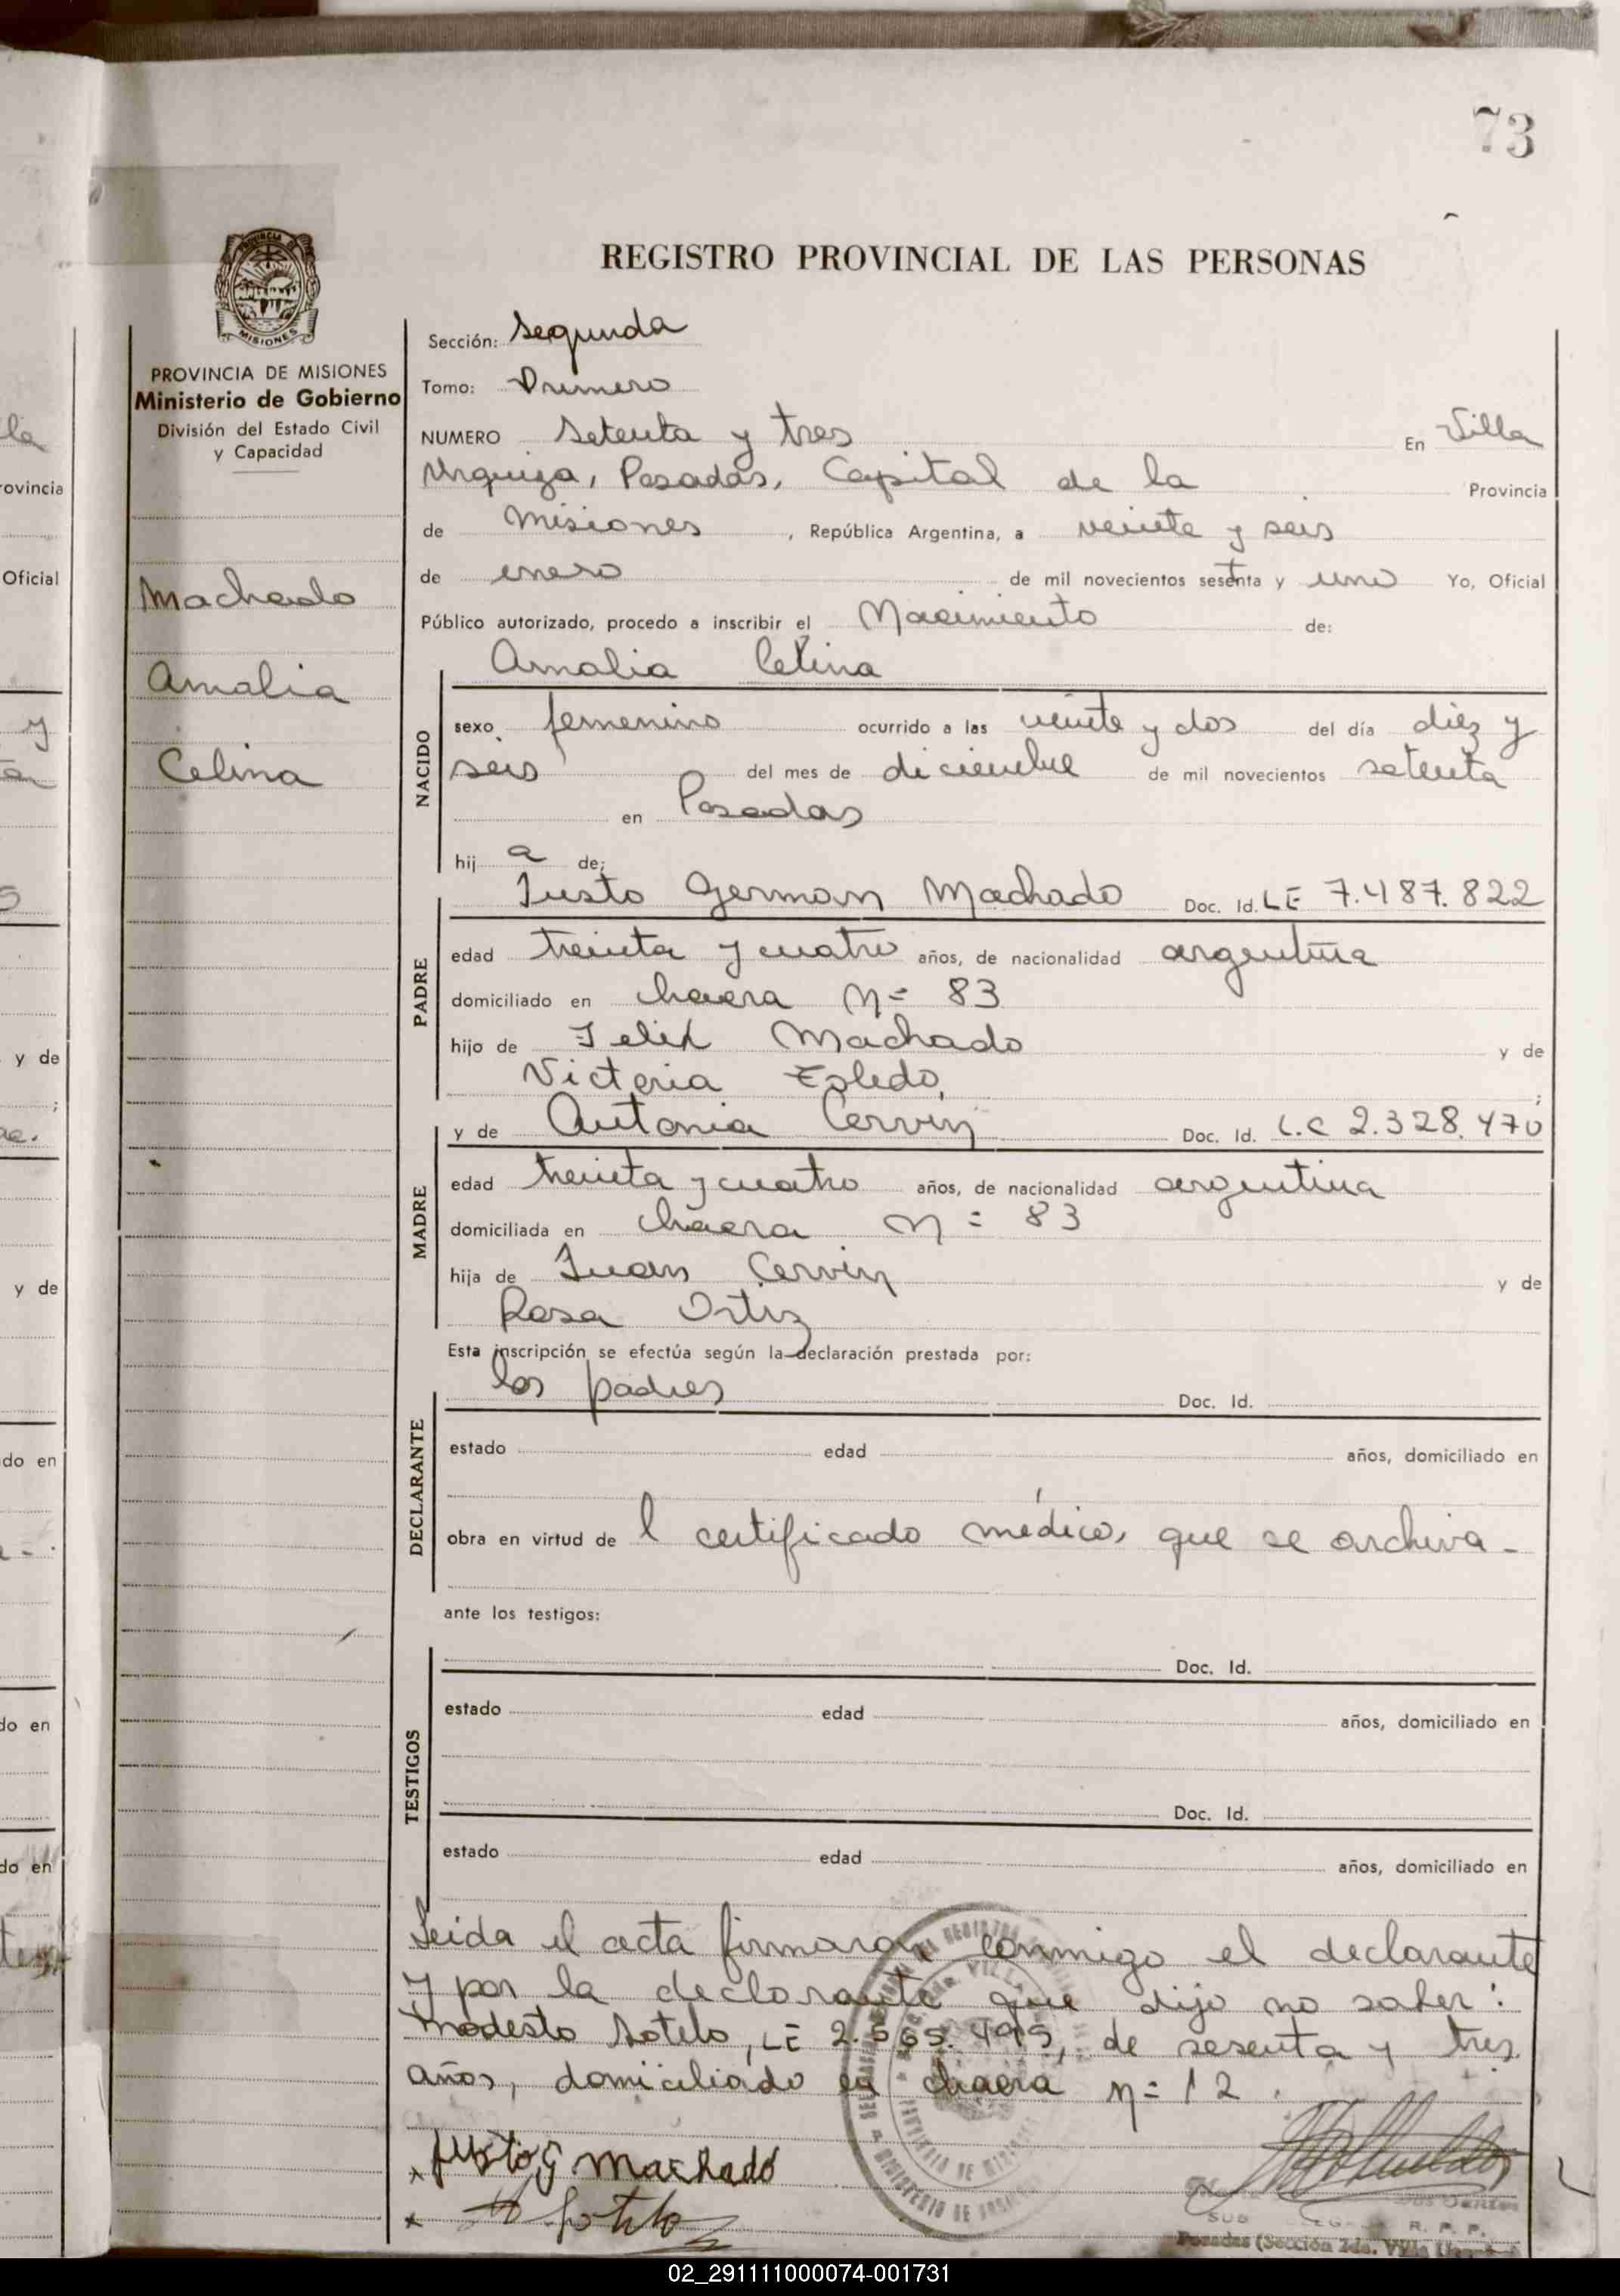 73
REGISTRO PROVINCIAL DE LAS PERSONAS
PROVINCIA DE MISIONES
Ministerio de Gobierno
División del Estado Civil
y Capacidad
Machado
Amalia
Celina
Sección: Segunda
Tomo: Primero
NUMERO Setenta y tres En Villa
Urquiza, Posadas, Capital de la Provincia
de Misiones, República Argentina, a veinte y seis
de enero de mil novecientos setenta y uno Yo, Oficial
Público autorizado, procedo a inscribir el Nacimiento de:
Amalia Celina
NACIDO
sexo femenino ocurrido a las veinte y dos del día diez y
seis del mes de diciembre de mil novecientos setenta
en Posadas
hija de;
Justo German Machado Doc. Id. LE 7.487.822
PADRE
edad treinta y cuatro años, de nacionalidad argentina
domiciliado en chacra Nº 83
hijo de Felix Machado y de
Victoria Toledo;
y de Antonia Cervin Doc. Id. L.C 2.328.470
MADRE
edad treinta y cuatro años, de nacionalidad argentina
domiciliada en chacra Nº 83
hija de Juan Cervin y de
Rosa Ortiz
Esta inscripción se efectúa según la declaración prestada por:
los padres Doc. Id.
DECLARANTE
estado edad años, domiciliado en
obra en virtud de l certificado médico, que se archiva-
ante los testigos:
Doc. Id.
TESTIGOS
estado edad años, domiciliado en
Doc. Id.
estado edad años, domiciliado en
Leida el acta firmaran conmigo el declarante
y por la declarante que dijo no saber:
Modesto Sotelo, LE 2.565.495, de sesenta y tres
años, domiciliado en chacra nº 12.
Justo G Machado
M Sotelo
R. P. P.
Posadas (Sección 2da. Villa
02_291111000074-001731